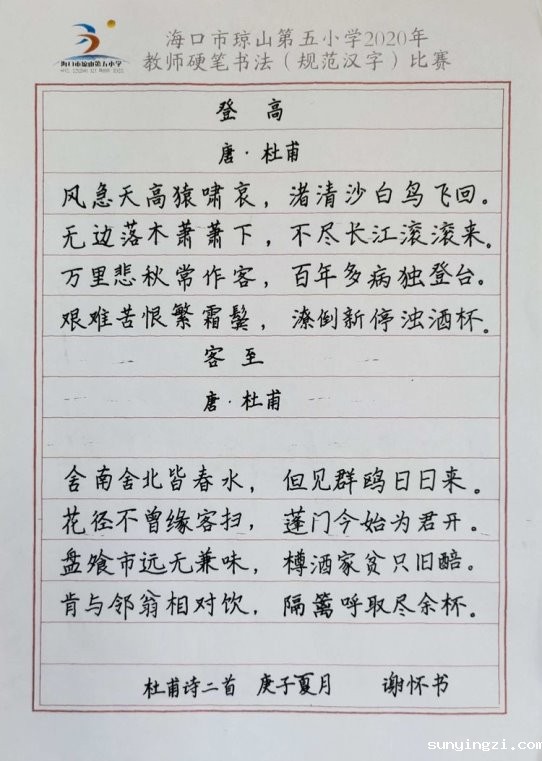 海口市琼山第五小学2020年
教师硬笔书法（规范汉字）比赛
海口市琼山第五小学
登 高
唐·杜甫
风急天高猿啸哀，渚清沙白鸟飞回。
无边落木萧萧下，不尽长江滚滚来。
万里悲秋常作客，百年多病独登台。
艰难苦恨繁霜鬓，潦倒新停浊酒杯。
客 至
唐·杜甫
舍南舍北皆春水，但见群鸥日日来。
花径不曾缘客扫，蓬门今始为君开。
盘飧市远无兼味，樽酒家贫只旧醅。
肯与邻翁相对饮，隔篱呼取尽余杯。
杜甫诗二首 庚子夏月 谢怀书
sunyingzi.com